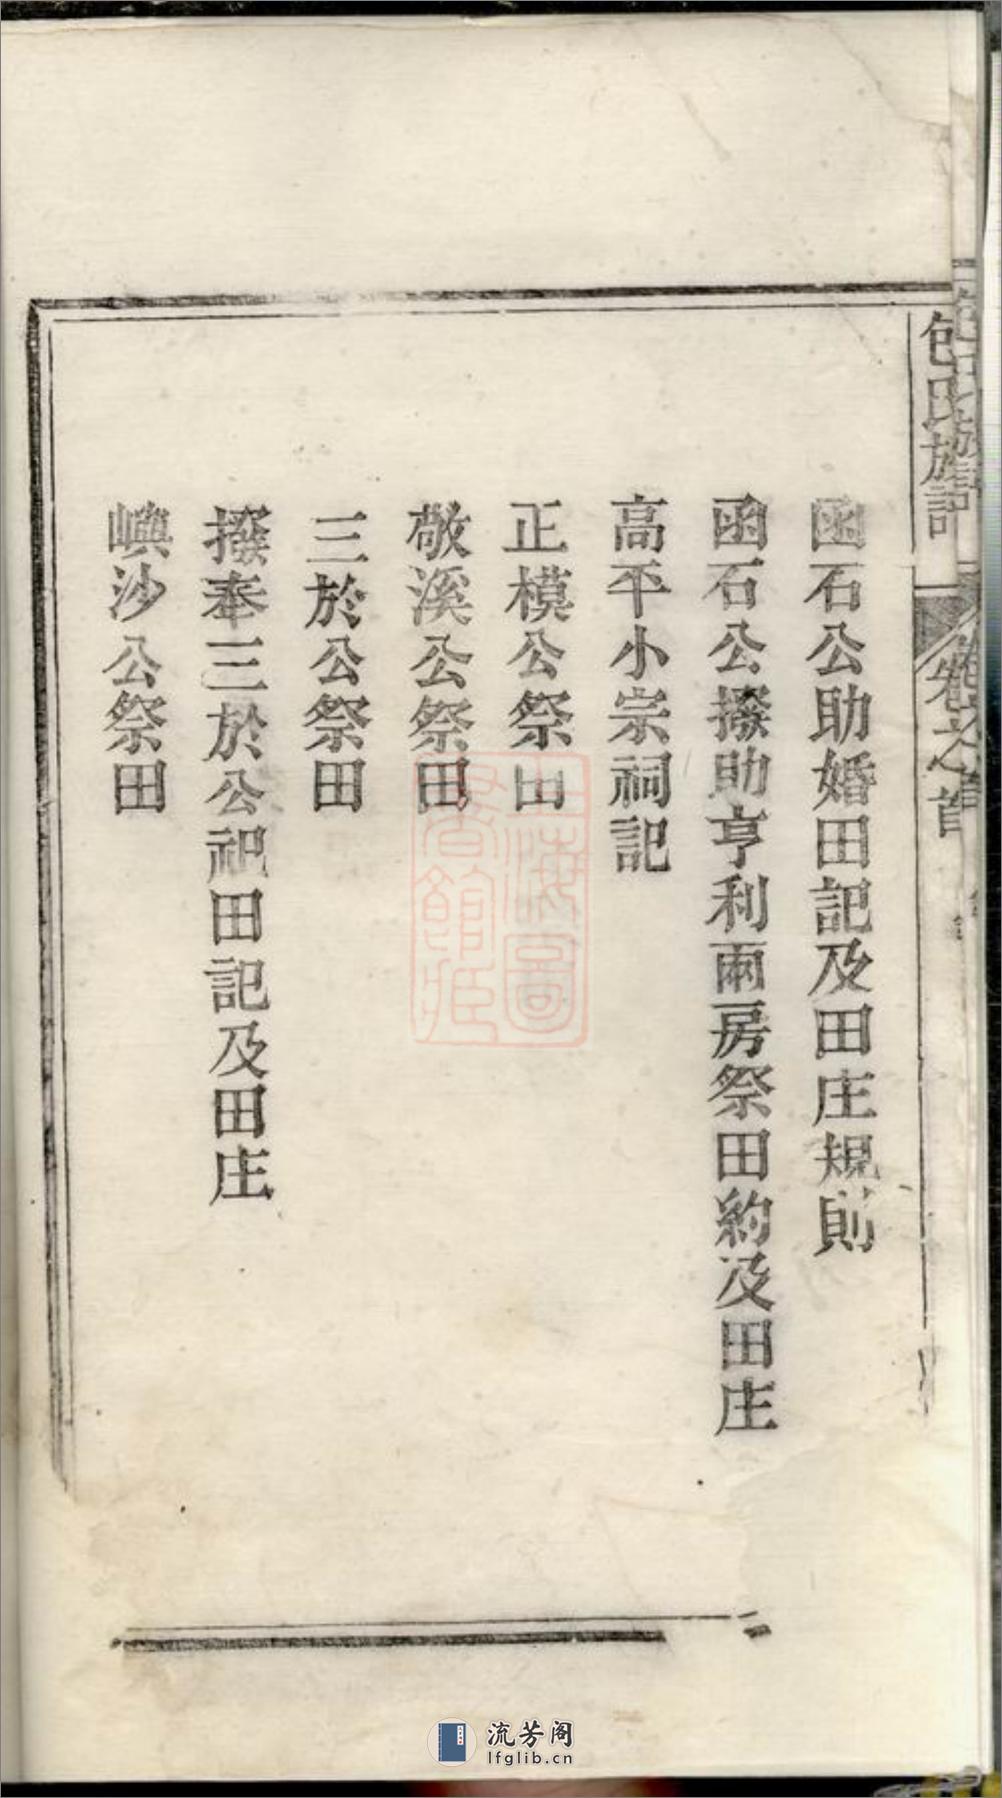 包氏族記
卷之首
函石公助婚田記及田庄規則
函石公撥助亨利兩房祭田約及田庄
高平小宗祠記
正模公祭田
敬溪公祭田
三於公祭田
撥奉三於公祖田記及田庄
嶼沙公祭田
上海圖
書館藏
流芳阁
lfglib.cn